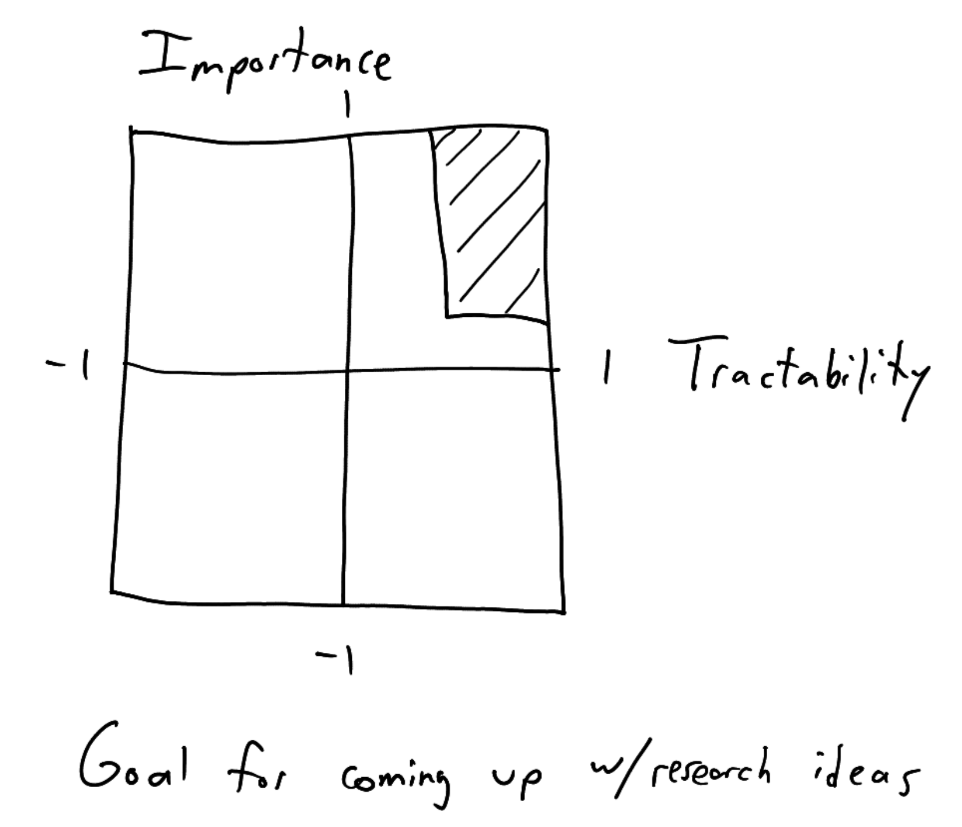 Importance
1
-1
1 Tractability
-1
Goal for coming up w/research ideas